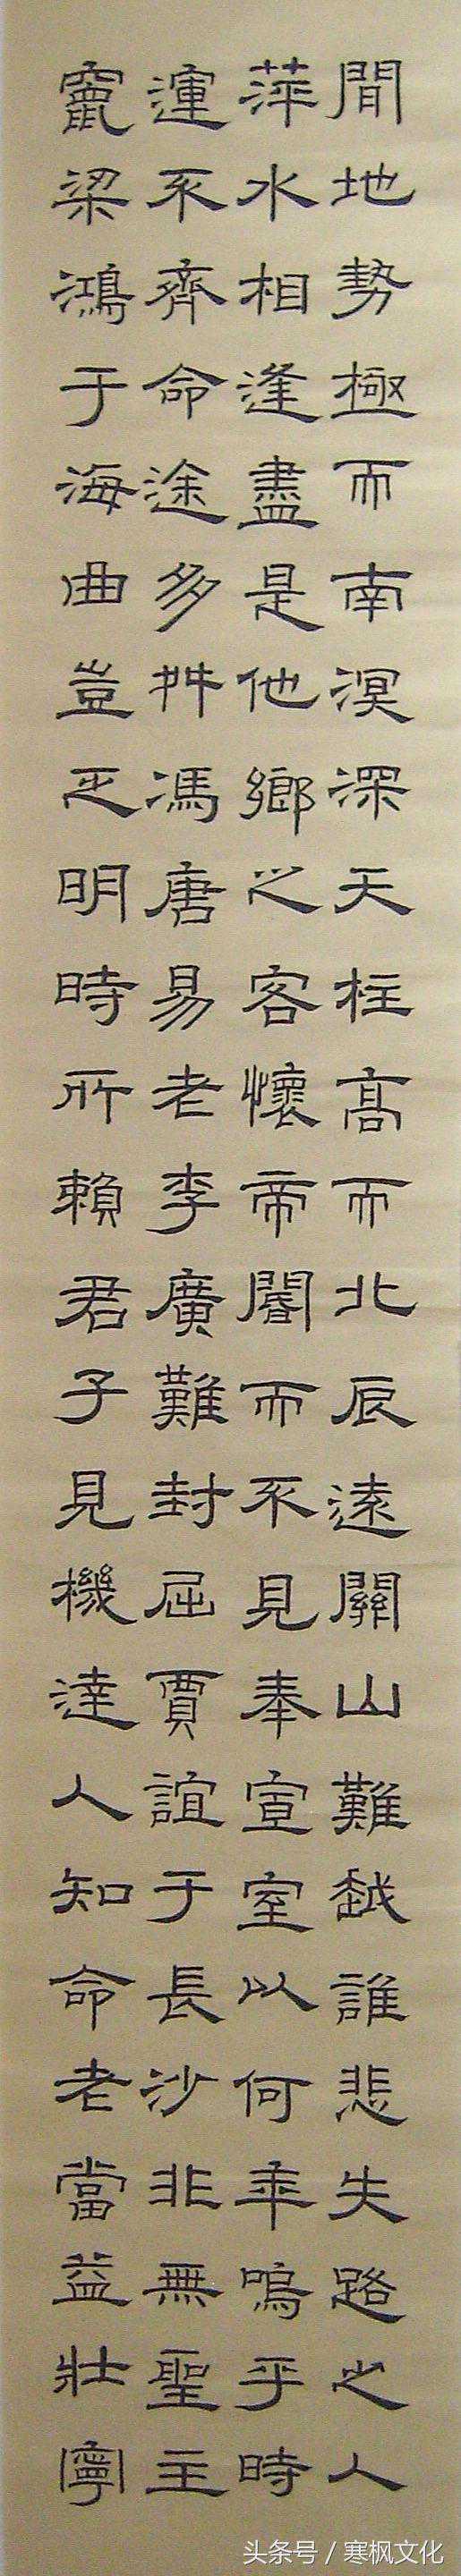 間地勢極而南溟深天柱高而北辰遠關山難越誰悲失路之人
萍水相逢盡是他鄉之客懷帝閽而不見奉宣室以何年嗚乎時
運不齊命途多舛馮唐易老李廣難封屈賈誼于長沙非無聖主
竄梁鴻于海曲豈乏明時所賴君子見機達人知命老當益壯寧
头条号 / 寒枫文化